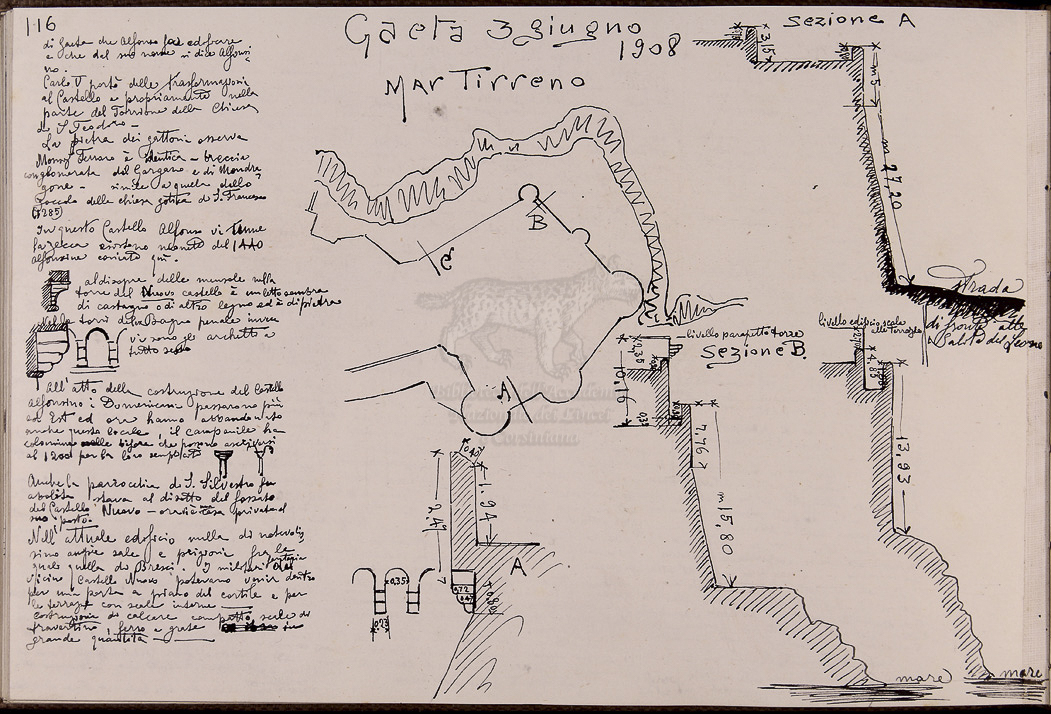 116
Gaeta 3 giugno
1908
Mar Tirreno
di Gaeta che Alfonso fece edificare
e che dal suo nome si dice Alfonsi-
no.
Carlo V portò delle trasformazioni
al Castello e propriamente nella
parte del Torrione della Chiesa
di S. Teodoro -
La pietra dei gattoni osserva
Monsg Ferraro è identica - breccia
conglomerata del Gargano e di Mondra
gone - simile a quella dello
zoccolo della chiesa gotica di S. Francesco
(1285)
In questo Castello Alfonso vi tenne
la zecca esistono monete del 1440
alfonsine coniate qui.
al disopra delle mensole sulla
torre del Nuovo castello è un letto sembra
di castagno o di altro legno ed è di pietra
Nelle torri del Bagno penale invece
vi sono gli archetti a
tutto sesto
All'atto della costruzione del Castello
alfonsino i Domenicani passarono più
ad Est ed ora hanno abbandonato
anche questo locale il campanile ha
colonnine nelle bifore che possono ascriversi
al 1200 per la loro semplicità
Anche la parrocchia di S. Silvestro fu
abolita stava al disotto del fossato
del Castello Nuovo - ora chiesa privata al
suo posto.
Nell'attuale edificio nulla di notevolis
simo ampie sale e prigioni fra le
quali quella di Bresci. I militari del
vicino Castello Nuovo potevano venir dentro
per una porta a piano del cortile e per
le terrazze con scale interne
costruzione di calcare compatto scale di
travertino, ferro e grate in
grande quantità
B
C
A
Sezione A
3,15
m 5
m 27,20
Strada
di fronte alla
Salita del Leone
livello parapetto torre
Sezione B.
2,35
10,16
7,76
m 15,80
livello edificio scale
alle terrazze
4,85
13,93
mare
mare
0,40
1.94
2,49
A
0,72
0,47
0,90
0,35
0,23